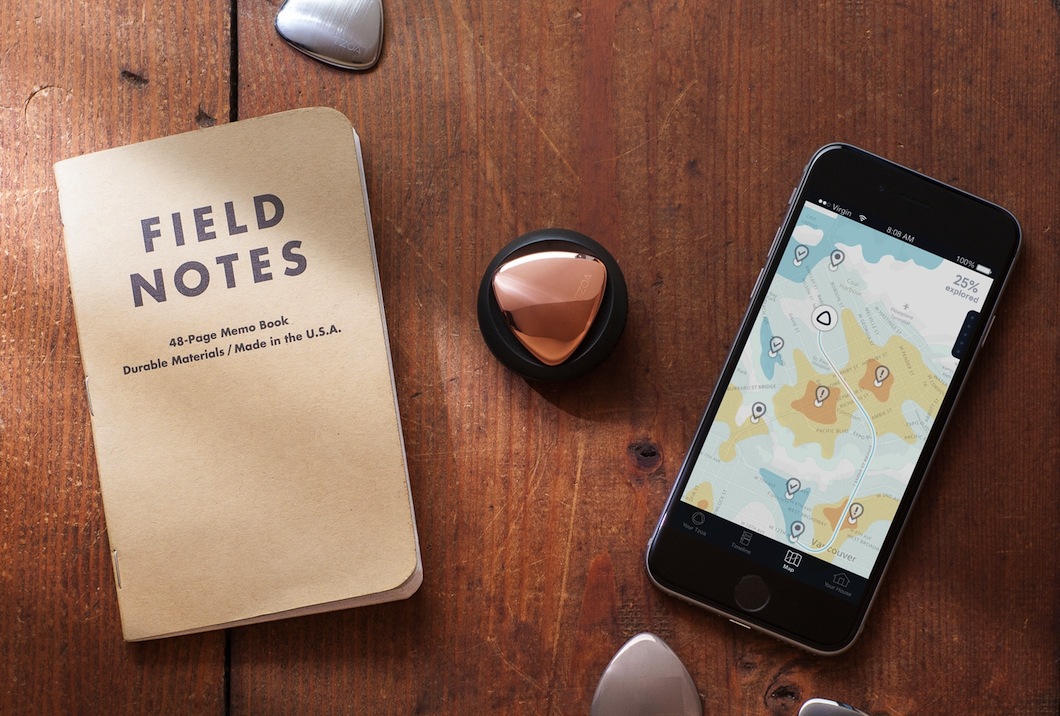 TZOA
FIELD
NOTES
48-Page Memo Book
Durable Materials / Made in the U.S.A.
TZOA
Virgin
8:08 AM
100%
25%
explored
Vancouver
Your Tzoa
Timeline
Map
Your House